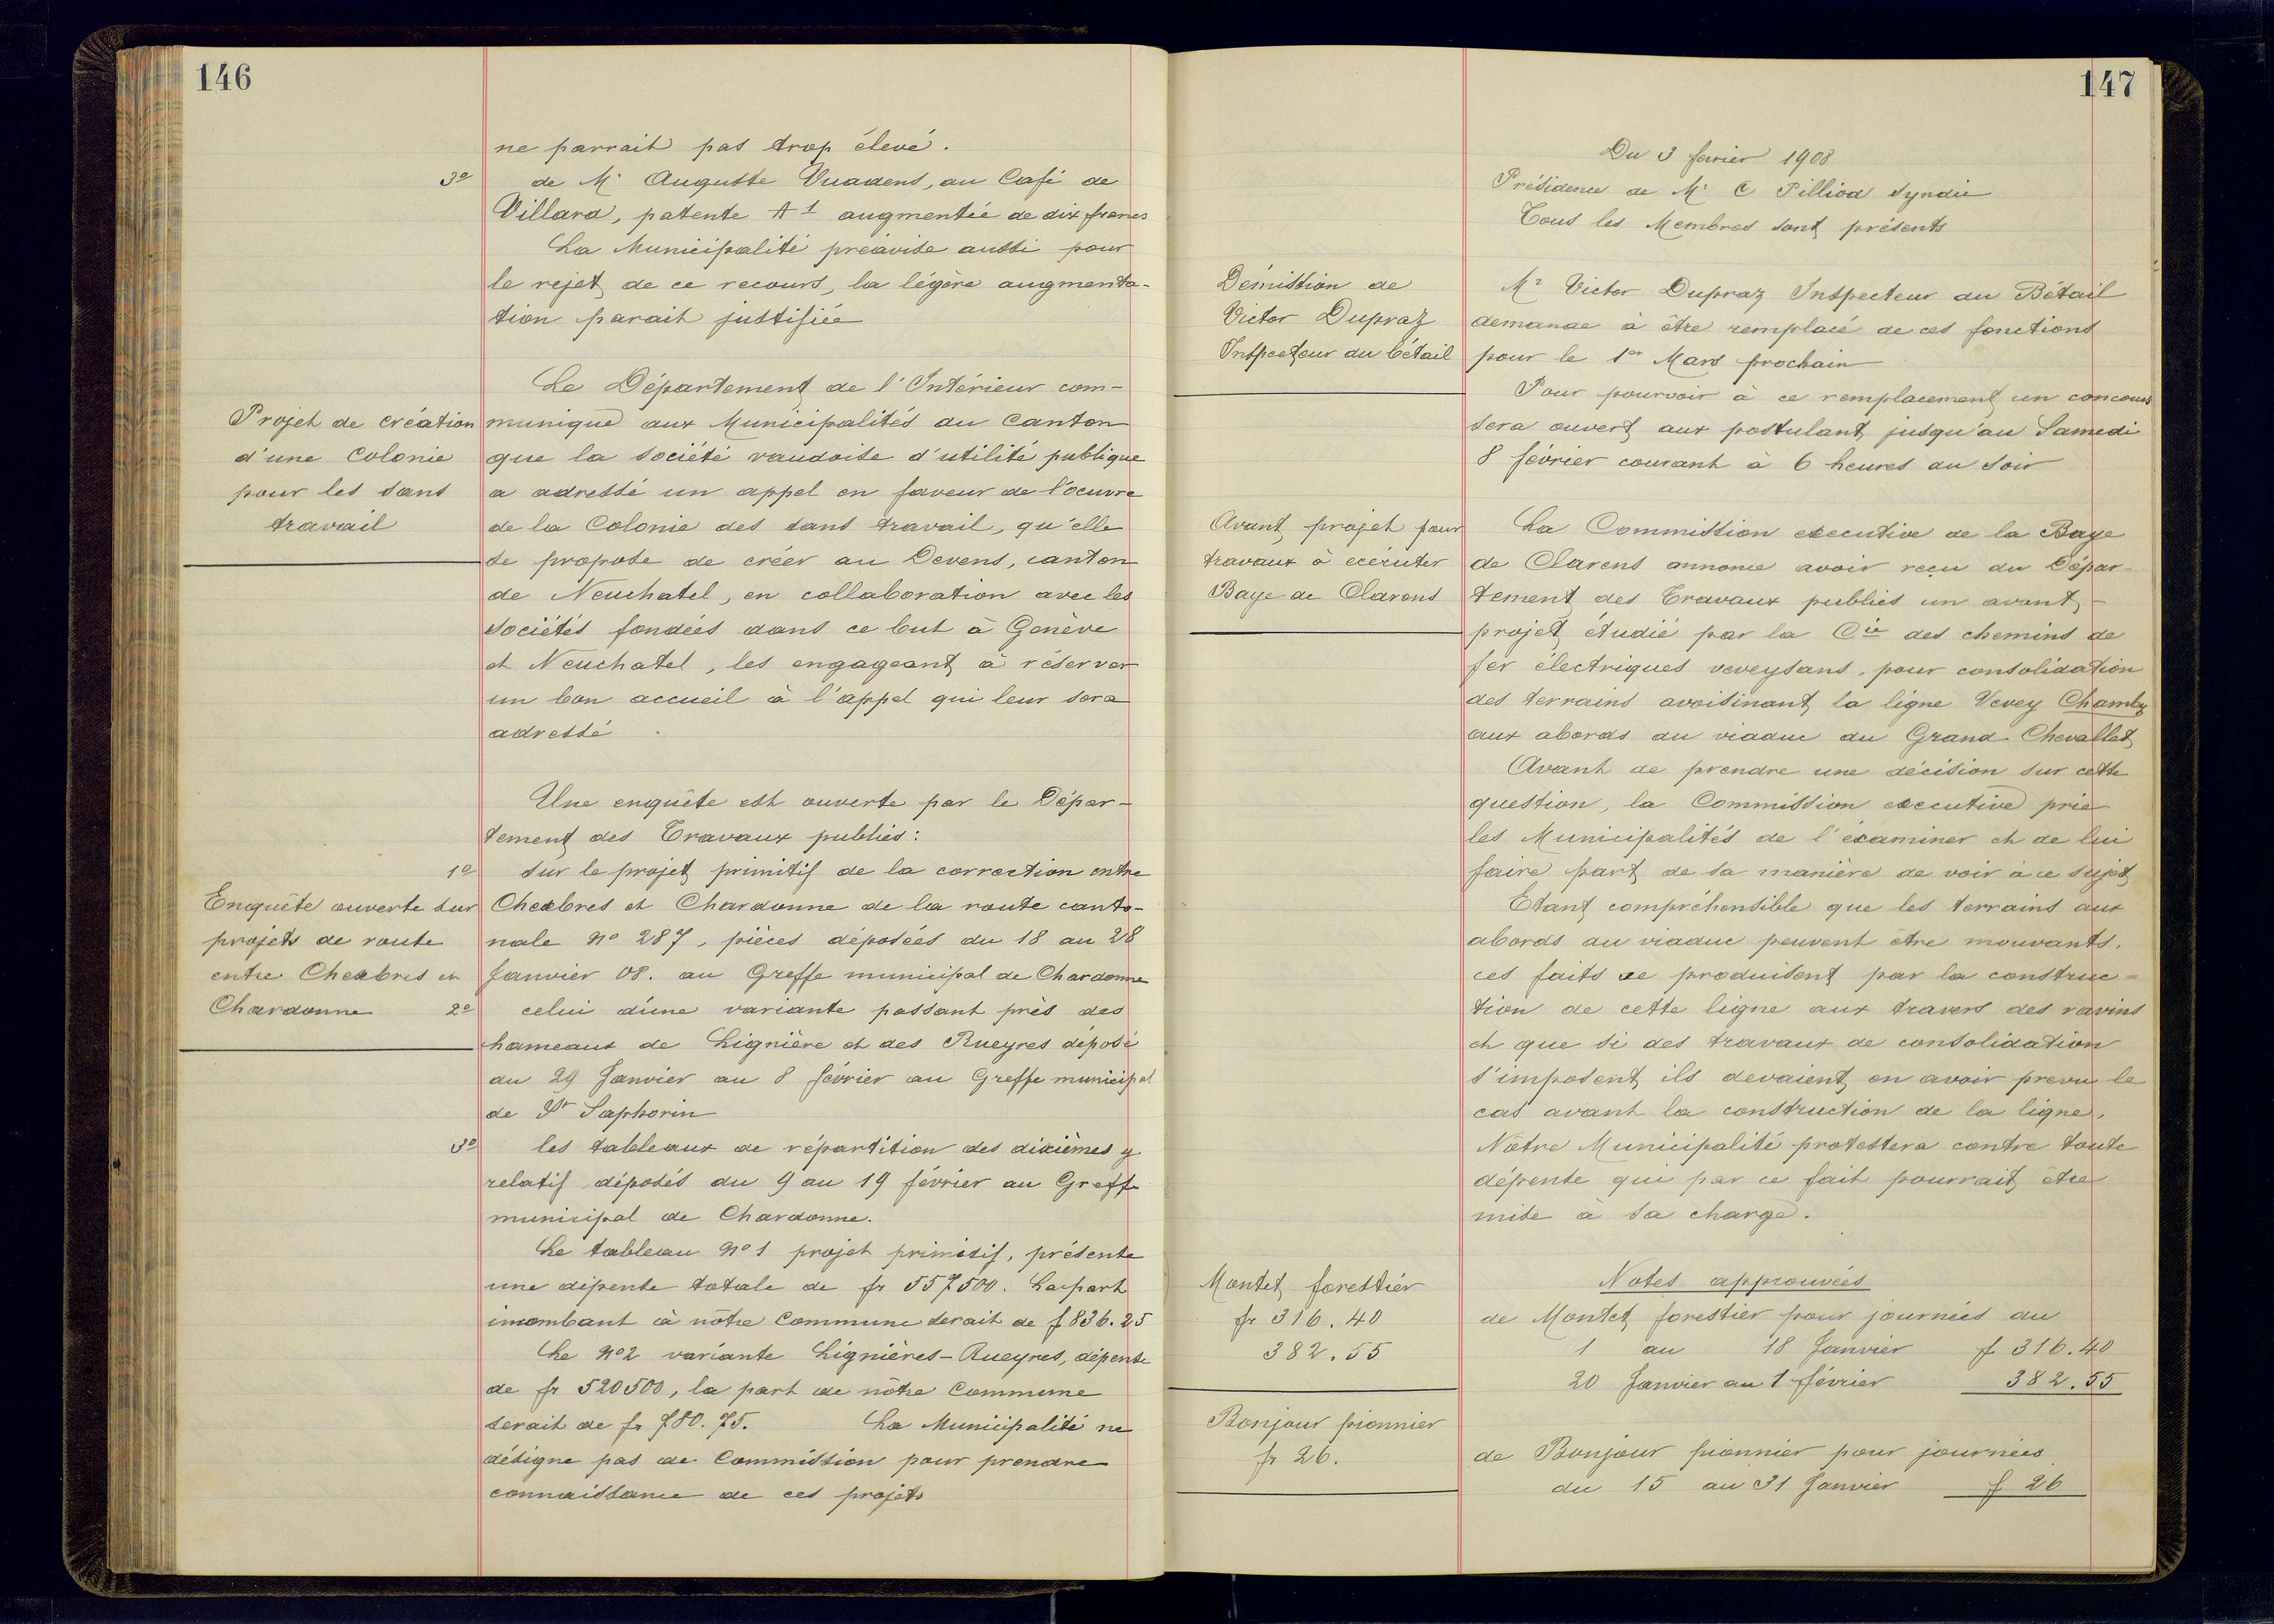 146
ne parrait pas trop élevé.
3° de Mr Auguste Vuadens, au Café de
Villard, patente A 1 augmentée de dix francs
La Municipalité préavise aussi pour
le rejet de ce recours, la légère augmenta-
tion parait justifiée
Projet de création
d'une Colonie
pour les sans
travail
Le Département de l'Intérieur com-
munique aux Municipalités du Canton
que la société vaudoise d'utilité publique
a adressé un appel en faveur de l'oeuvre
de la Colonie des sans travail, qu'elle
se propose de créer au Devens, canton
de Neuchatel, en collaboration avec les
sociétés fondées dans ce but à Genève
et Neuchatel, les engageant à réserver
un bon accueil à l'appel qui leur sera
adressé
Enquête ouverte sur
projets de route
entre Chexbres et
Chardonne
Une enquête est ouverte par le Dépar-
tement des Travaux publics:
1° sur le projet primitif de la correction entre
Chexbres et Chardonne de la route canto-
nale No 287, pièces déposées du 18 au 28
Janvier 08. au Greffe municipal de Chardonne
2° celui d'une variante passant près des
hameaux de Lignière et des Rueyres déposé
du 29 Janvier au 8 février au Greffe municipal
de St Saphorin
3° les tableaux de répartition des dixièmes y
relatif déposés du 9 au 19 février au Greffe
municipal de Chardonne.
Le tableau No 1 projet primitif, présente
une dépense totale de fr 557500. La part
imombant à nôtre Commune serait de f 836.25
Le No 2 variante Lignières-Rueyres, dépense
de fr 520500, la part de nôtre Commune
serait de fr 780.75. La Municipalité ne
désigne pas de Commission pour prendre
connaissance de ces projets
147
Du 3 fevier 1908
Présidence de Mr C Pilliod Syndic
Tous les Membres sont présents
Démission de
Victor Dupraz
Inspecteur du bétail
Mr Victor Dupraz Inspecteur du Bétail
demande à être remplacé de ces fonctions
pour le 1er Mars prochain
Pour pourvoir à ce remplacement un concours
sera ouvert aux postulant jusqu'au Samedi
8 février courant à 6 heures du soir
Avant projet pour
travaux à exécuter
Baye de Clarens
La Commission executive de la Baye
de Clarens annonce avoir reçu du Dépar-
tement des Travaux publics un avant-
projet étudié par la Cie des chemins de
fer électriques veveysans, pour consolidation
des terrains avoisinant la ligne Vevey Chamby
aux abords du viaduc du Grand Chevallet
Avant de prendre une décision sur cette
question, la Commission executive prie
les Municipalités de l'éxaminer et de lui
faire part de sa manière de voir à ce sujet
Etant compréhensible que les terrains aux
abords du viaduc peuvent être mouvants,
ces faits se produisent par la construc-
tion de cette ligne aux travers des ravins
et que si des travaux de consolidation
s'imposent ils devaient en avoir prevu le
cas avant la construction de la ligne,
Nôtre Municipalité protestera contre toute
dépense qui par ce fait pourrait être
mise à sa charge.
Montet forestier
fr 316.40
382.55
Notes approuvées
de Montet forestier pour journées du
1 au 18 Janvier f 316.40
20 Janvier au 1 février 382.55
Bonjour pionnier
fr 26.
de Bonjour pionnier pour journées
du 15 au 31 Janvier f 26